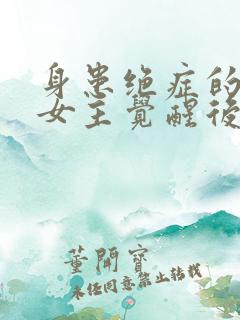 身患绝症的
女主覺醒後
董開寶
未经同意禁止转载